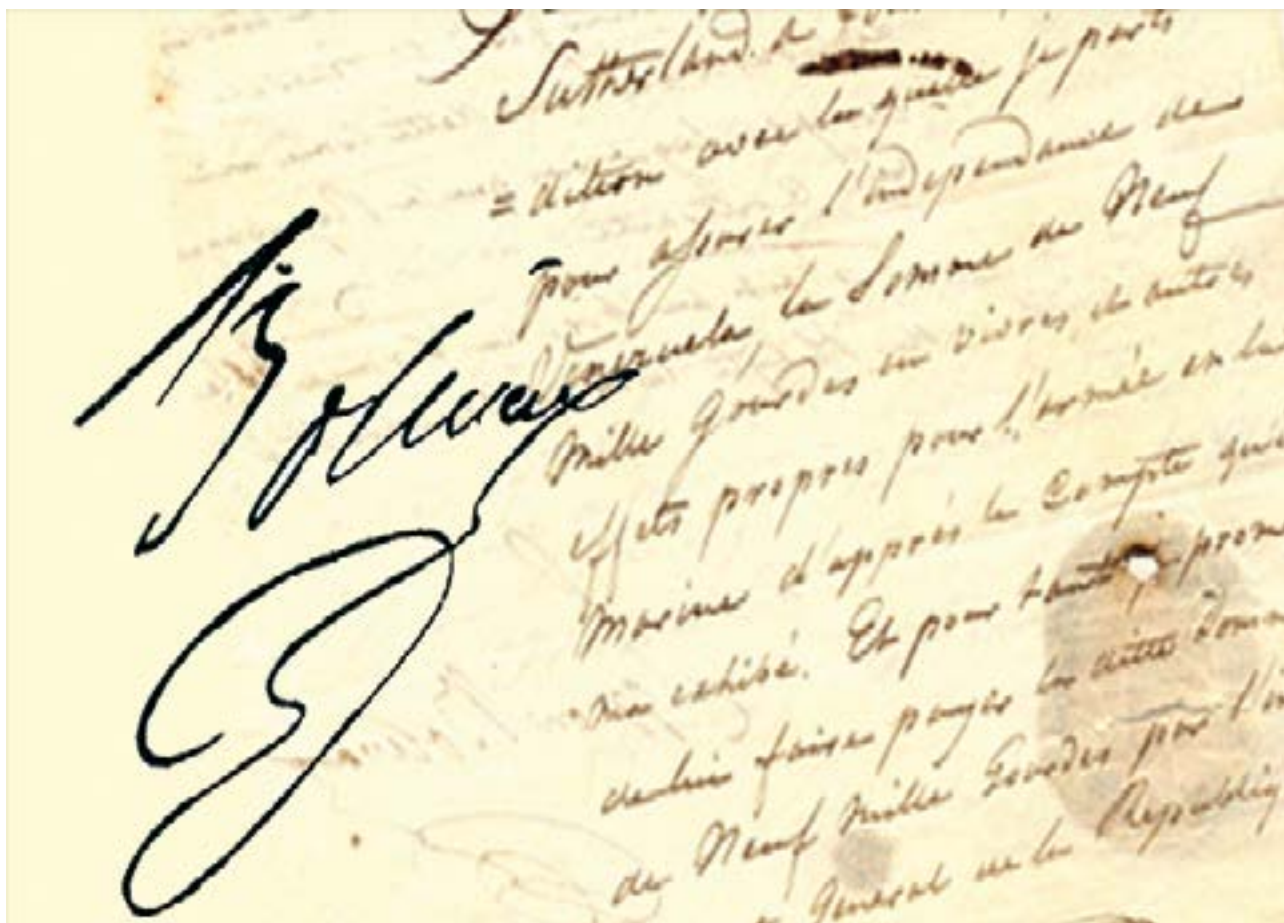 Sutherland. d
= dition avec la quelle je parts
pour assurer l'independance de
Venezuela, la Somme de Neuf
Mille Gourdes en vivres, et autres
effets propres pour l'armée en la
Marine d'apprés le Compte qu'i
ma exhibé. Et pour tant je prom
de lui faire payer la ditte Somm
de Neuf Mille Gourdes par l'i
General de la Republiq
Bolivar